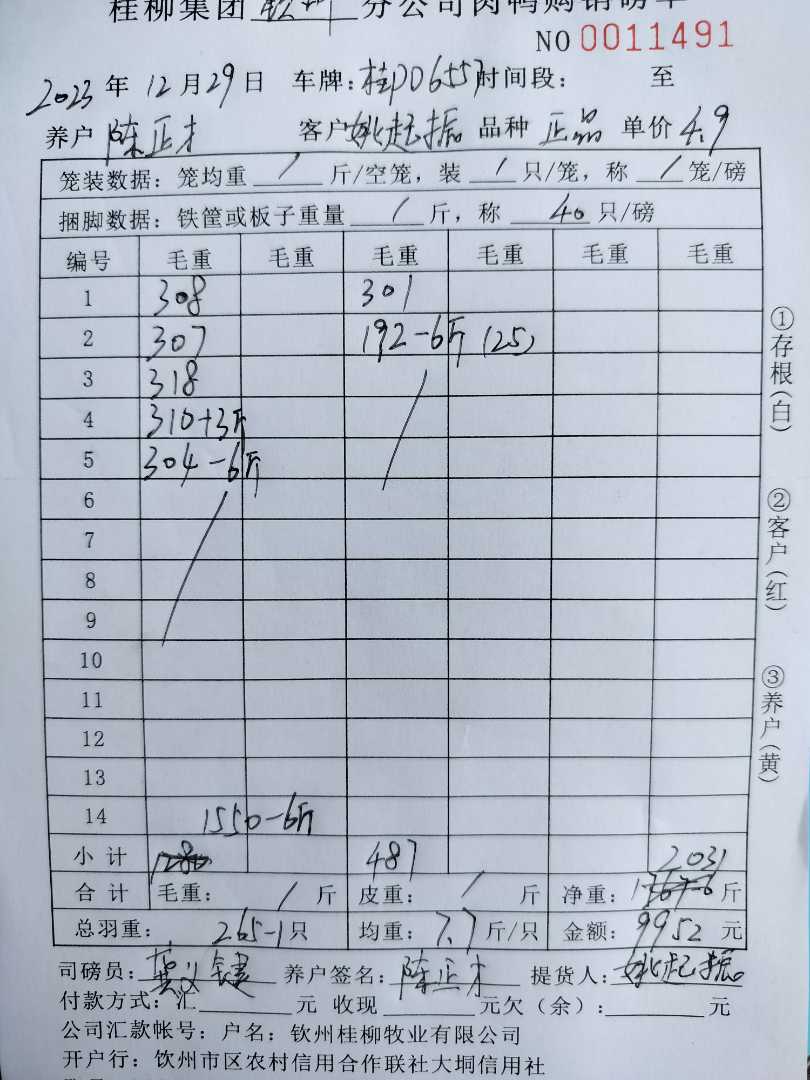 桂柳集团 钦州 分公司肉鸭购销磅单
NO 0011491
2023 年 12 月 29 日 车牌: 桂PD6557 时间段: 至
养户 陈正才 客户 姚起振 品种 正品 单价 4.9
笼装数据: 笼均重 / 斤/空笼, 装 / 只/笼, 称 / 笼/磅
捆脚数据: 铁筐或板子重量 / 斤, 称 40 只/磅
编号 毛重 毛重 毛重 毛重 毛重 毛重
1 308 301
2 307 192-6斤 (25)
3 318
4 310+3斤
5 304-6斤
6
7
8
9
10
11
12
13
14 1550-6斤
小计 1280 487 2031
合计 毛重: / 斤 皮重: / 斤 净重: 斤
总羽重: 265-1 只 均重: 7.7 斤/只 金额: 9952 元
司磅员: 龚义键 养户签名: 陈正才 提货人: 姚起振
付款方式: 汇 元 收现 元欠(余): 元
公司汇款帐号: 户名: 钦州桂柳牧业有限公司
开户行: 钦州市区农村信用合作联社大垌信用社
①存根(白)
②客户(红)
③养户(黄)